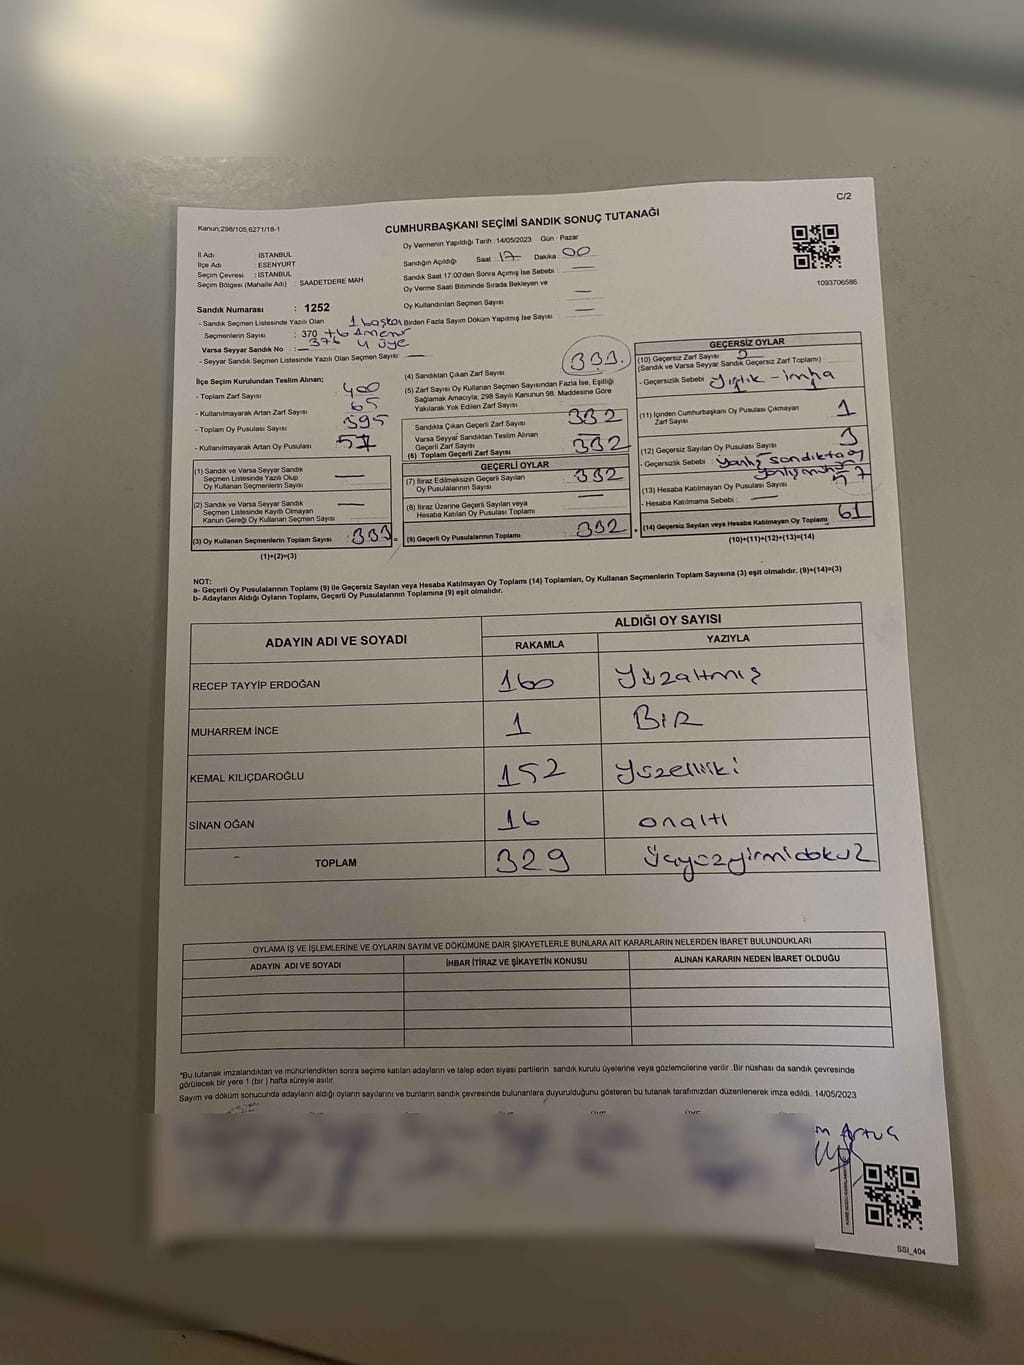 C/2
Kanun,298/105;6271/18-1
CUMHURBAŞKANI SEÇİMİ SANDIK SONUÇ TUTANAĞI
Oy Vermenin Yapıldığı Tarih :14/05/2023 Gün : Pazar
İl Adı : İSTANBUL
İlçe Adı : ESENYURT
Seçim Çevresi : İSTANBUL
Seçim Bölgesi (Mahalle Adı) : SAADETDERE MAH
Sandığın Açıldığı Saat 17 Dakika 00
Sandık Saat 17:00'den Sonra Açımış İse Sebebi
Oy Verme Saati Bitiminde Sırada Bekleyen ve
Oy Kullandırılan Seçmen Sayısı
1093706586
Sandık Numarası : 1252
- Sandık Seçmen Listesinde Yazılı Olan
Seçmenlerin Sayısı : 370 +6
1 başkan
376 4 üye
Birden Fazla Sayım Döküm Yapılmış İse Sayısı :
Varsa Seyyar Sandık No :
- Seyyar Sandık Seçmen Listesinde Yazılı Olan Seçmen Sayısı:
İlçe Seçim Kurulundan Teslim Alınan;
- Toplam Zarf Sayısı : 400
- Kullanılmayarak Artan Zarf Sayısı : 65
- Toplam Oy Pusulası Sayısı : 395
- Kullanılmayarak Artan Oy Pusulası : 57
(1) Sandık ve Varsa Seyyar Sandık
Seçmen Listesinde Yazılı Olup
Oy Kullanan Seçmenlerin Sayısı
(2) Sandık ve Varsa Seyyar Sandık
Seçmen Listesinde Kayıtlı Olmayan
Kanun Gereği Oy Kullanan Seçmen Sayısı
(3) Oy Kullanan Seçmenlerin Toplam Sayısı :333=
(1)+(2)=(3)
(4) Sandıktan Çıkan Zarf Sayısı 333.
(5) Zarf Sayısı Oy Kullanan Seçmen Sayısından Fazla İse, Eşitliği
Sağlamak Amacıyla; 298 Sayılı Kanunun 98. Maddesine Göre
Yakılarak Yok Edilen Zarf Sayısı
Sandıkta Çıkan Geçerli Zarf Sayısı 332
Varsa Seyyar Sandıktan Teslim Alınan
Geçerli Zarf Sayısı
(6) Toplam Geçerli Zarf Sayısı 332
GEÇERLİ OYLAR
(7) İtiraz Edilmeksizin Geçerli Sayılan
Oy Pusulalarının Sayısı 332
(8) İtiraz Üzerine Geçerli Sayılan veya
Hesaba Katılan Oy Pusulası Toplamı
(9) Geçerli Oy Pusulalarının Toplamı 332
GEÇERSİZ OYLAR
(10) Geçersiz Zarf Sayısı
(Sandık ve Varsa Seyyar Sandık Geçersiz Zarf Toplamı)
- Geçersizlik Sebebi : yırtık - imha
(11) İçinden Cumhurbaşkanı Oy Pusulası Çıkmayan
Zarf Sayısı 1
(12) Geçersiz Sayılan Oy Pusulası Sayısı 3
- Geçersizlik Sebebi : yanlış sandıkta oy
(13) Hesaba Katılmayan Oy Pusulası Sayısı 57
- Hesaba Katılmama Sebebi :
(14) Geçersiz Sayılan veya Hesaba Katılmayan Oy Toplamı 61
(10)+(11)+(12)+(13)=(14)
NOT:
a- Geçerli Oy Pusulalarının Toplamı (9) ile Geçersiz Sayılan veya Hesaba Katılmayan Oy Toplamı (14) Toplamları, Oy Kullanan Seçmenlerin Toplam Sayısına (3) eşit olmalıdır. (9)+(14)=(3)
b- Adayların Aldığı Oyların Toplamı, Geçerli Oy Pusulalarının Toplamına (9) eşit olmalıdır.
ADAYIN ADI VE SOYADI ALDIĞI OY SAYISI
RAKAMLA YAZIYLA
RECEP TAYYİP ERDOĞAN 160 Yüzaltmış
MUHARREM İNCE 1 BİR
KEMAL KILIÇDAROĞLU 152 Yüzelliiki
SİNAN OĞAN 16 onaltı
TOPLAM 329 üçyüzyirmidokuz
OYLAMA İŞ VE İŞLEMLERİNE VE OYLARIN SAYIM VE DÖKÜMÜNE DAİR ŞİKAYETLERLE BUNLARA AİT KARARLARIN NELERDEN İBARET BULUNDUKLARI
ADAYIN ADI VE SOYADI İHBAR İTİRAZ VE ŞİKAYETİN KONUSU ALINAN KARARIN NEDEN İBARET OLDUĞU
"Bu tutanak imzalandıktan ve mühürlendikten sonra seçime katılan adayların ve talep eden siyasi partilerin sandık kurulu üyelerine veya gözlemcilerine verilir .Bir nüshası da sandık çevresinde
görülecek bir yere 1 (bir ) hafta süreyle asılır.
Sayım ve döküm sonucunda adayların aldığı oyların sayılarını ve bunların sandık çevresinde bulunanlara duyurulduğunu gösteren bu tutanak tarafımızdan düzenlenerek imza edildi. 14/05/2023
SSI_404